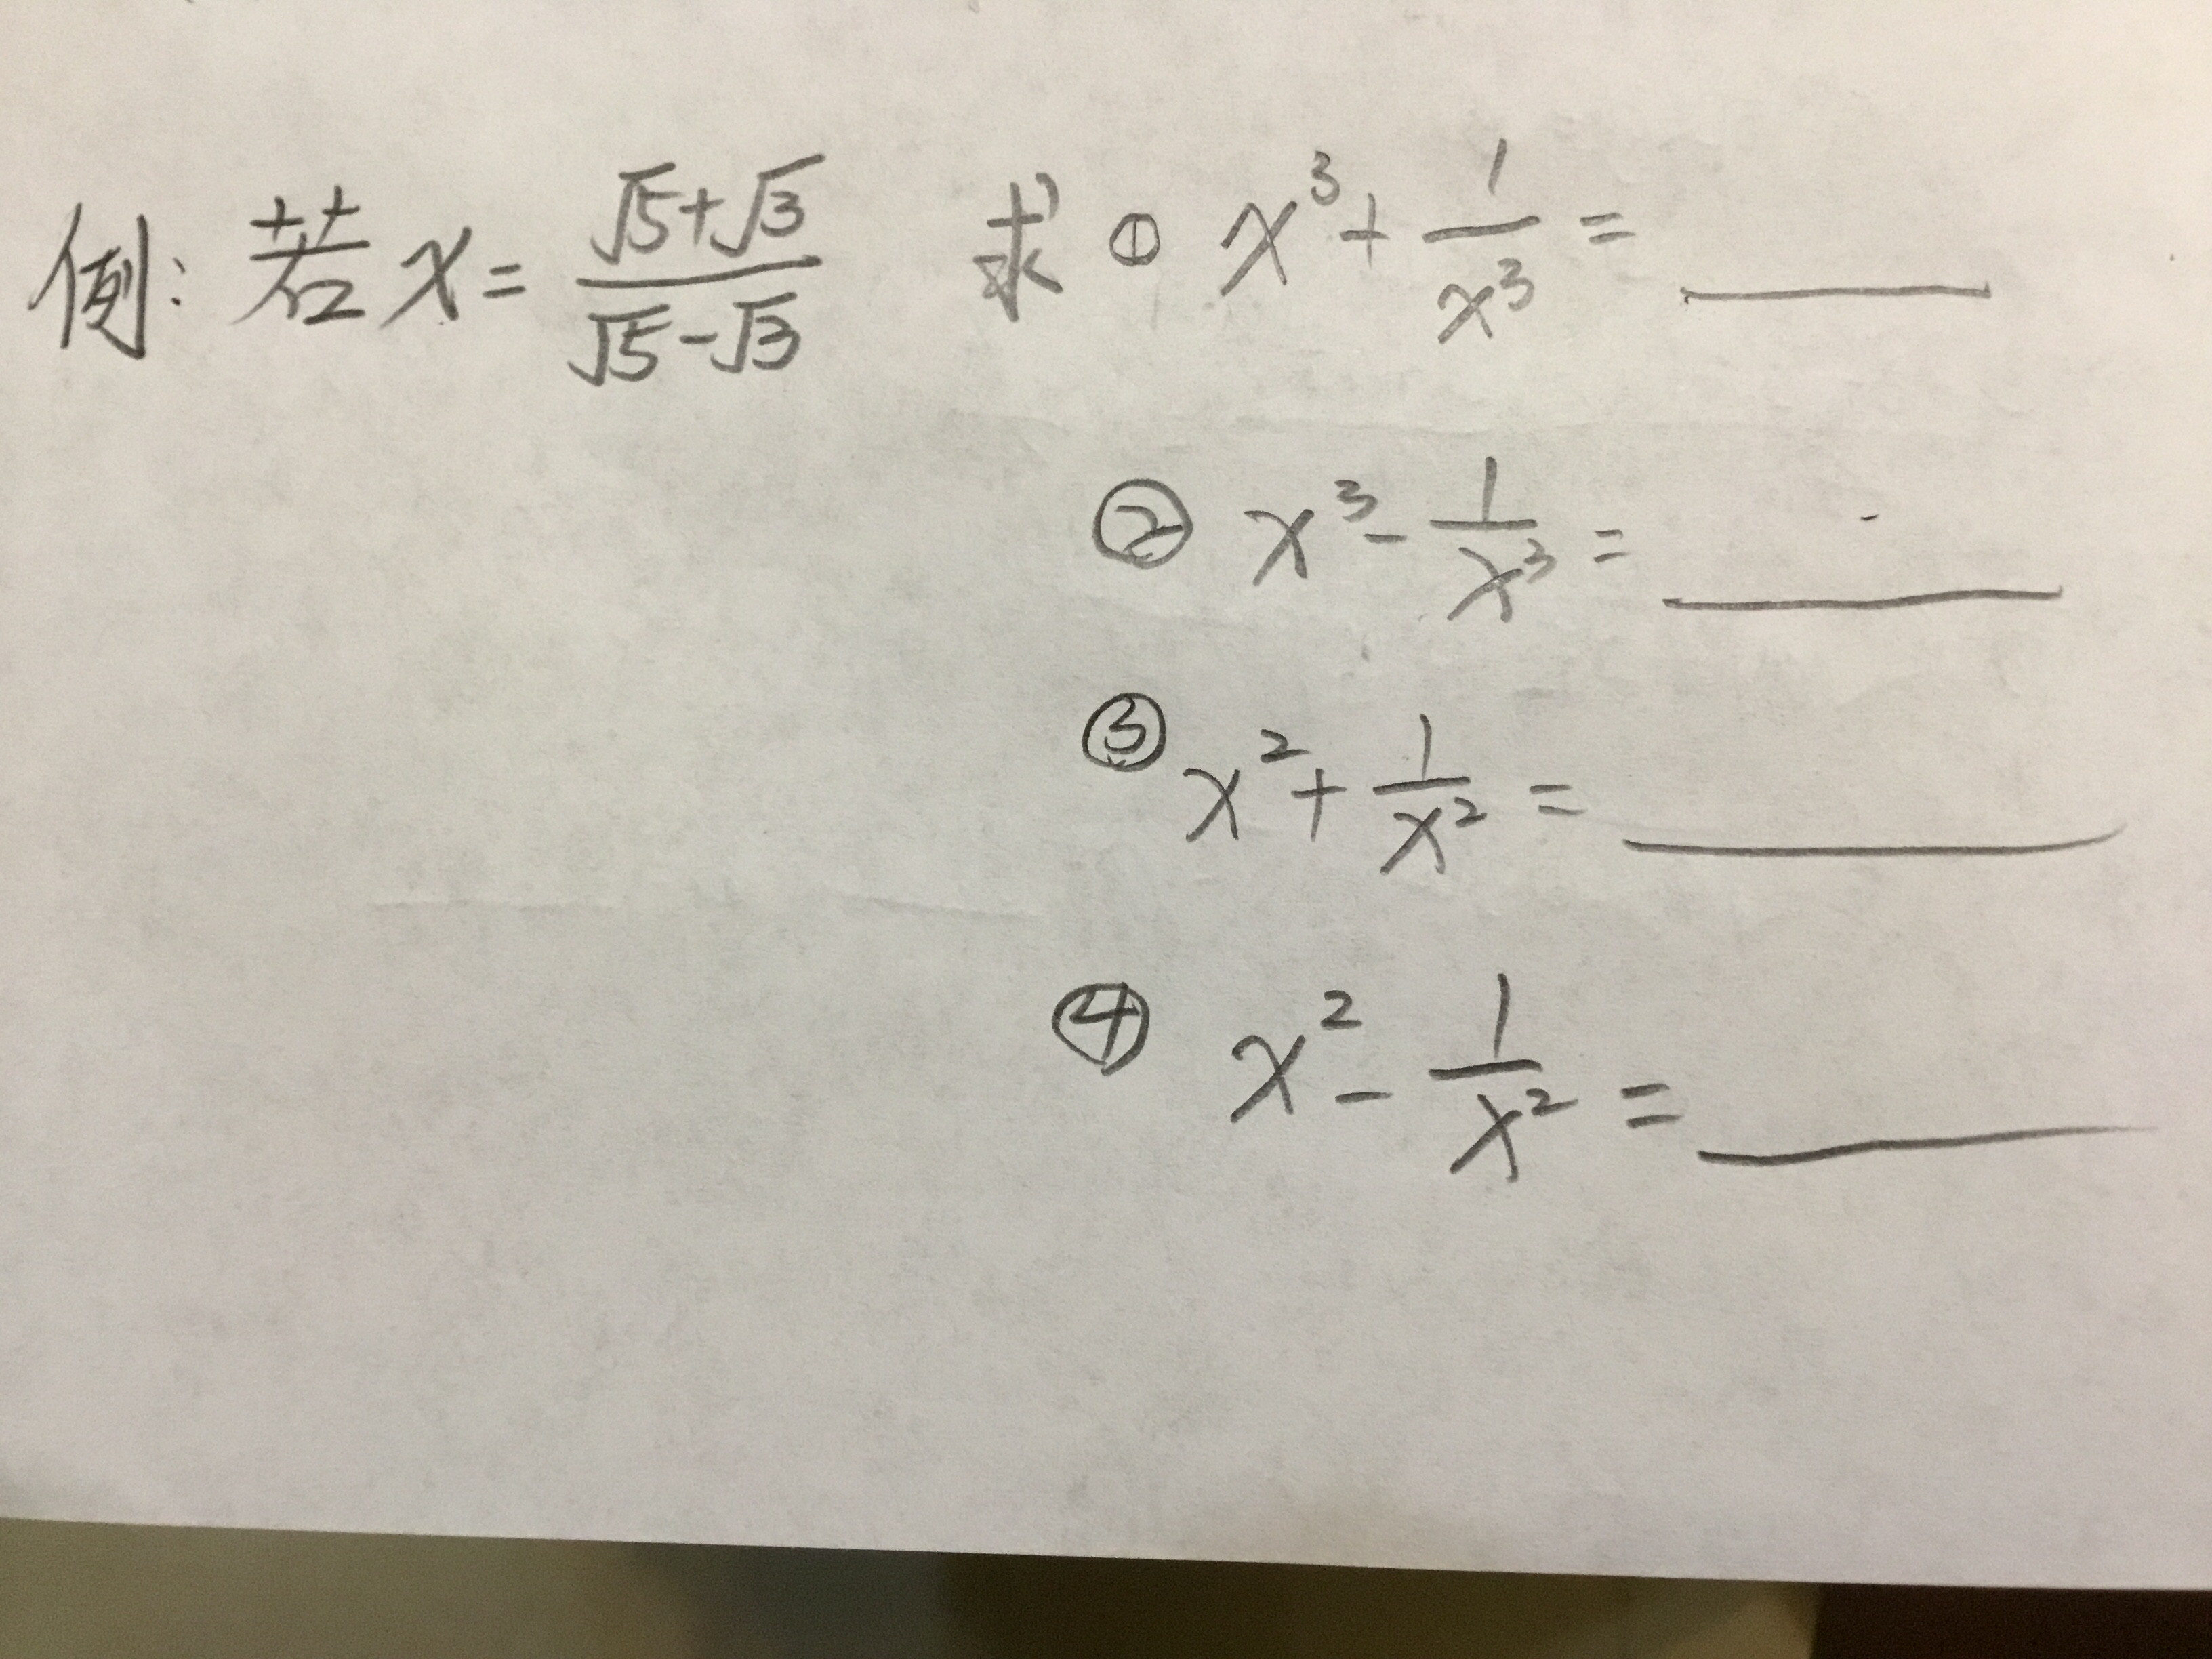 例: 若 x = (√5+√3)/(√5-√3) 求 ① x³ + 1/x³ = ____
② x³ - 1/x³ = ____
③ x² + 1/x² = ____
④ x² - 1/x² = ____